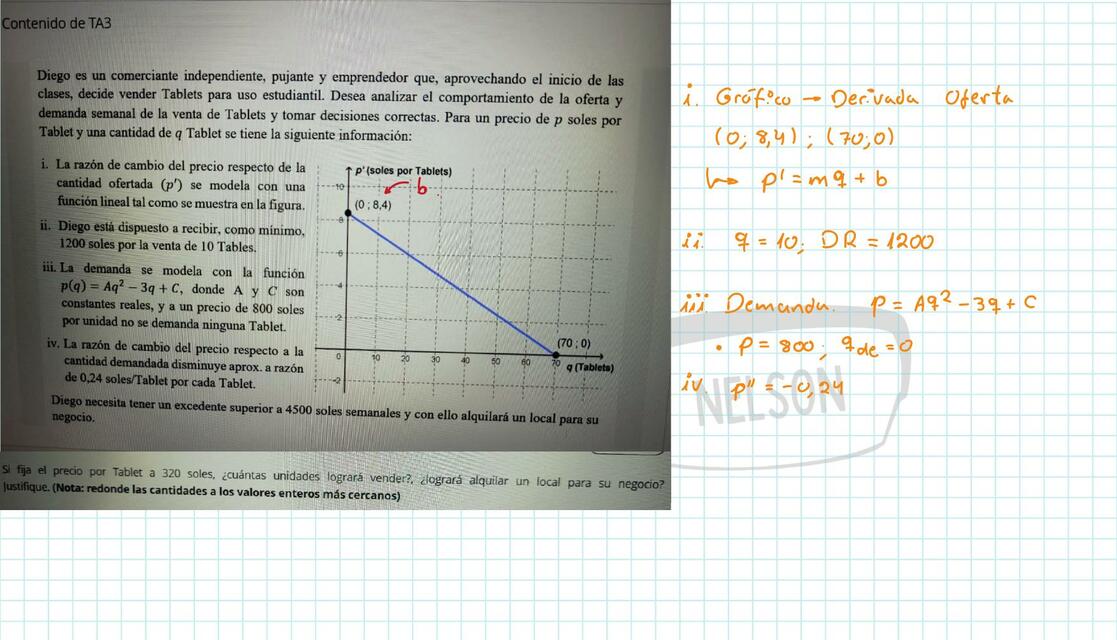 Contenido de TA3
Diego es un comerciante independiente, pujante y emprendedor que, aprovechando el inicio de las
clases, decide vender Tablets para uso estudiantil. Desea analizar el comportamiento de la oferta y
demanda semanal de la venta de Tablets y tomar decisiones correctas. Para un precio de p soles por
Tablet y una cantidad de q Tablet se tiene la siguiente información:
i. La razón de cambio del precio respecto de la
cantidad ofertada (p') se modela con una
función lineal tal como se muestra en la figura.
ii. Diego está dispuesto a recibir, como mínimo,
1200 soles por la venta de 10 Tables.
iii. La demanda se modela con la función
p(q) = Aq² − 3q + C, donde A y C son
constantes reales, y a un precio de 800 soles
por unidad no se demanda ninguna Tablet.
iv. La razón de cambio del precio respecto a la
cantidad demandada disminuye aprox. a razón
de 0,24 soles/Tablet por cada Tablet.
p' (soles por Tablets)
b
10
(0 ; 8,4)
8
6
4
2
(70 ; 0)
0 10 20 30 40 50 60 70 q (Tablets)
-2
Diego necesita tener un excedente superior a 4500 soles semanales y con ello alquilará un local para su
negocio.
Si fija el precio por Tablet a 320 soles, ¿cuántas unidades logrará vender?, ¿logrará alquilar un local para su negocio?
Justifique. (Nota: redonde las cantidades a los valores enteros más cercanos)
i. Gráfico → Derivada Oferta
(0; 8,4) ; (70; 0)
↳ p' = mq + b
ii. q = 10; DR = 1200
iii Demanda. p = Aq² − 3q + C
• p = 800 ; qde = 0
iv. p'' = −0,24
NELSON